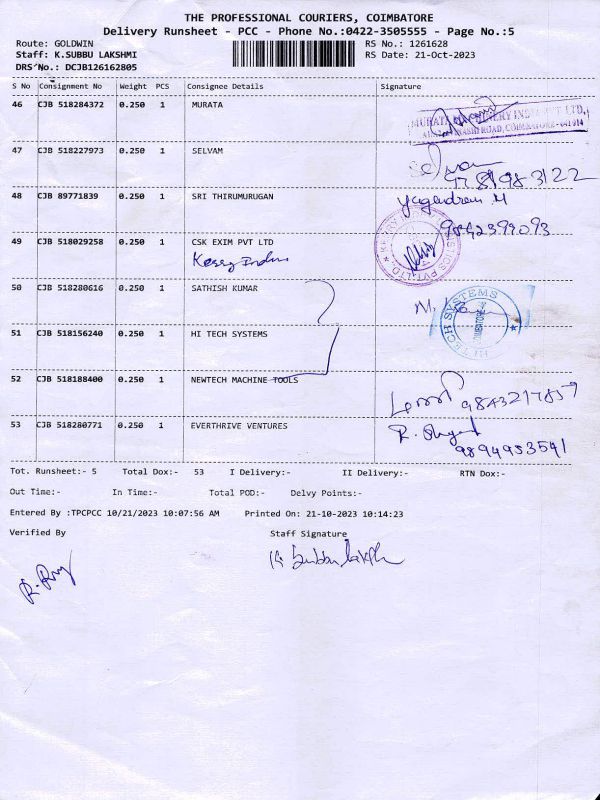 THE PROFESSIONAL COURIERS, COIMBATORE
Delivery Runsheet - PCC - Phone No.:0422-3505555 - Page No.:5
Route: GOLDWIN
RS No.: 1261628
Staff: K.SUBBU LAKSHMI
RS Date: 21-Oct-2023
DRS No.: DCJB126162805
S No Consignment No Weight PCS Consignee Details Signature
46 CJB 518284372 0.250 1 MURATA
47 CJB 518227973 0.250 1 SELVAM
Selvam
48 CJB 89771839 0.250 1 SRI THIRUMURUGAN
9842399093
49 CJB 518029258 0.250 1 CSK EXIM PVT LTD
50 CJB 518280616 0.250 1 SATHISH KUMAR
HI TECH SYSTEMS
COIMBATORE
51 CJB 518156240 0.250 1 HI TECH SYSTEMS
52 CJB 518188400 0.250 1 NEWTECH MACHINE TOOLS
9843217857
53 CJB 518280771 0.250 1 EVERTHRIVE VENTURES
9894953541
Tot. Runsheet:- 5 Total Dox:- 53 I Delivery:- II Delivery:- RTN Dox:-
Out Time:- In Time:- Total POD:- Delvy Points:-
Entered By :TPCPCC 10/21/2023 10:07:56 AM Printed On: 21-10-2023 10:14:23
Verified By Staff Signature
K Subbulakshmi